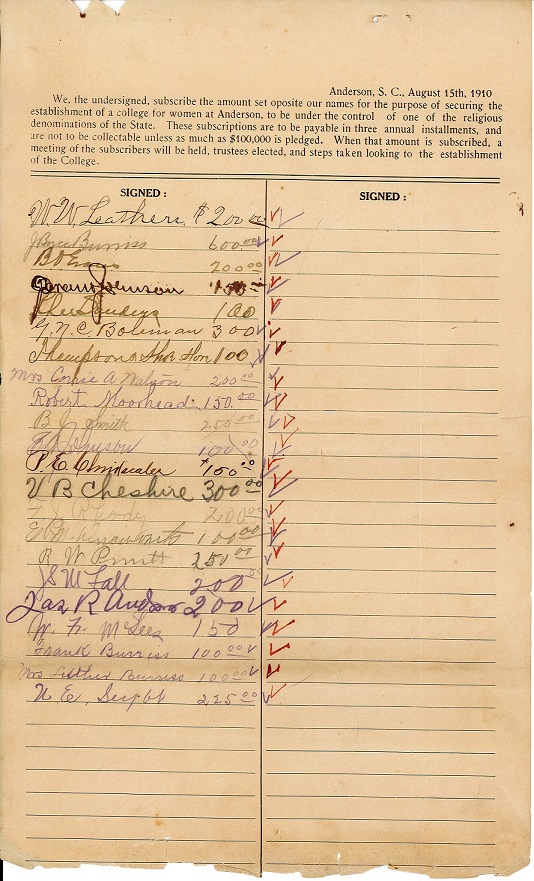 Anderson, S. C., August 15th, 1910
We, the undersigned, subscribe the amount set oposite our names for the purpose of securing the
establishment of a college for women at Anderson, to be under the control of one of the religious
denominations of the State. These subscriptions are to be payable in three annual installments, and
are not to be collectable unless as much as $100,000 is pledged. When that amount is subscribed, a
meeting of the subscribers will be held, trustees elected, and steps taken looking to the establishment
of the College.
SIGNED: SIGNED:
W W Leathers $200 00
Burriss 600 00
B O Evans 200 00
Johnson 150 00
100
G. N. C. Boleman 300
Thompsons Shoe Store 100
Mrs Correie A Watson 200 00
Robert Moorhead 150.00
B J Smith 250 00
Johnson 100 00
P. E. Clinkscales $150 00
V B Cheshire 300 00
200 00
E M 100 00
R W Pruitt 250 00
J S M Fall 200 00
Jas R Anderson 200
W. F. McGee 150
Frank Burriss 100 00
Mrs Luther Burriss 100 00
N. E. 225 00